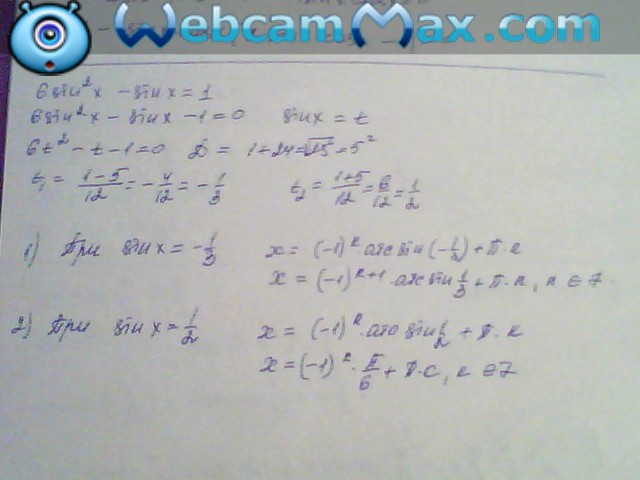 WebcamMax.com
6sin²x - sinx = 1
6sin²x - sinx - 1 = 0 sinx = t
6t² - t - 1 = 0 D = 1 + 24 = √25 = 5²
t₁ = (1-5)/12 = -4/12 = -1/3 t₂ = (1+5)/12 = 6/12 = 1/2
1) При sinx = -1/3 x = (-1)ᵏ · arcsin(-1/3) + π · к
x = (-1)ᵏ⁺¹ · arcsin 1/3 + π · к, к ∈ Z
2) При sinx = 1/2 x = (-1)ᵏ · arcsin 1/2 + π · к
x = (-1)ᵏ · π/6 + π · к, к ∈ Z